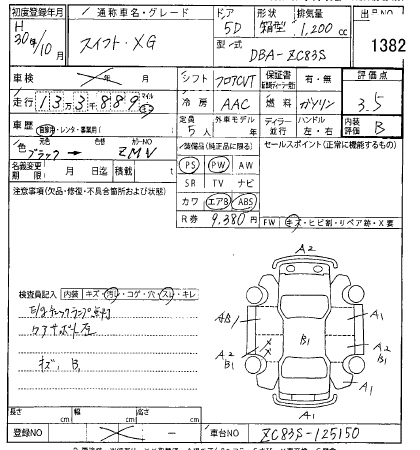 初度登録年月 通称車名・グレード ドア 形状 排気量 出品NO
H 30年/10月 スイフト・XG 5D 箱型 1,200cc 1382
型/式 DBA-ZC83S
車検 年 月 シフト フロアCVT 保証書 有・無 評価点
走行 13万3千889 マイル km 冷房 AAC 燃料 ガソリン 3.5
車歴 自家用・レンタ・事業用( ) 定員 5人 外車モデル 年 ディーラー 並行 ハンドル 左・右 内装評価 B
色 元色 ブラック → 色替 カラーNO ZMV
装備品(純正品に限る) セールスポイント(正常に機能するもの)
名義変更期限 月 日迄 積載
PS PW AW
注意事項(欠品・修復・不具合箇所および状態)
SR TV ナビ
カワ エアB ABS
R券 9,380円
FW キズ・ヒビ割・リペア跡・X要
検査員記入 内装 キズ・汚レ・コゲ・穴・スレ・キレ
E/gチェックランプ点灯
キズ, B1
A2
A1
A1
B1
A2
B1
A2
A1
A1
A1
長さ cm 幅 cm 高さ cm
登録NO — 車台NO ZC83S-125150